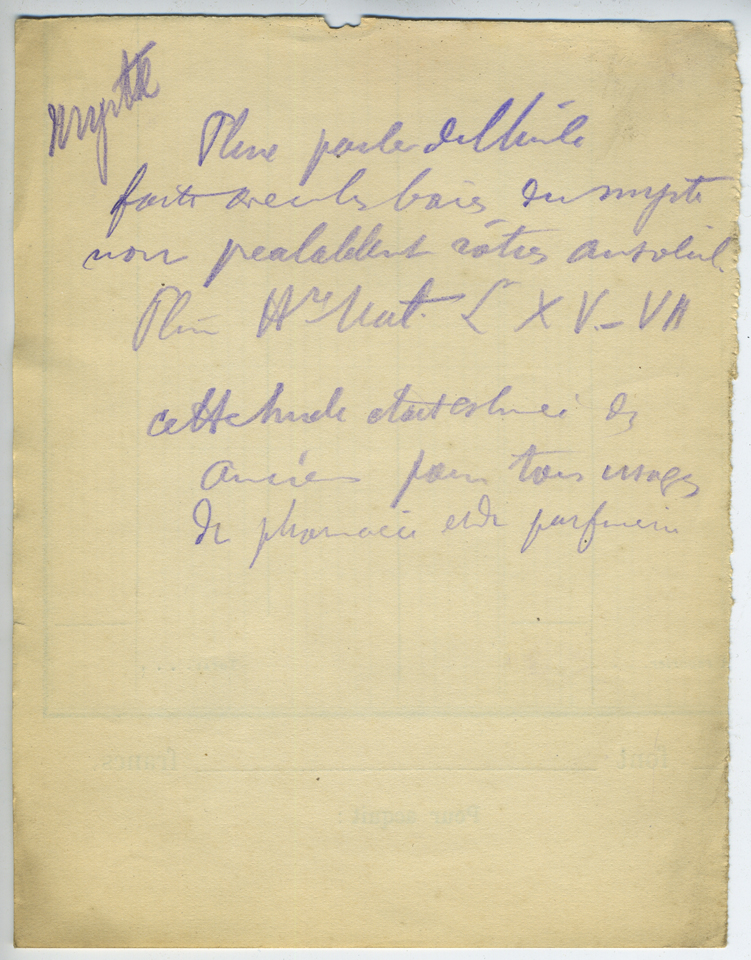 Myrte
Pline parle de l'huile
faite avec les baies du myrte
non préalablement rôties au soleil.
Pline Hre Nat. L XV - VII
cette huile était estimée des
anciens pour tous usages
de pharmacie et de parfumerie
font francs
Pour acquit :